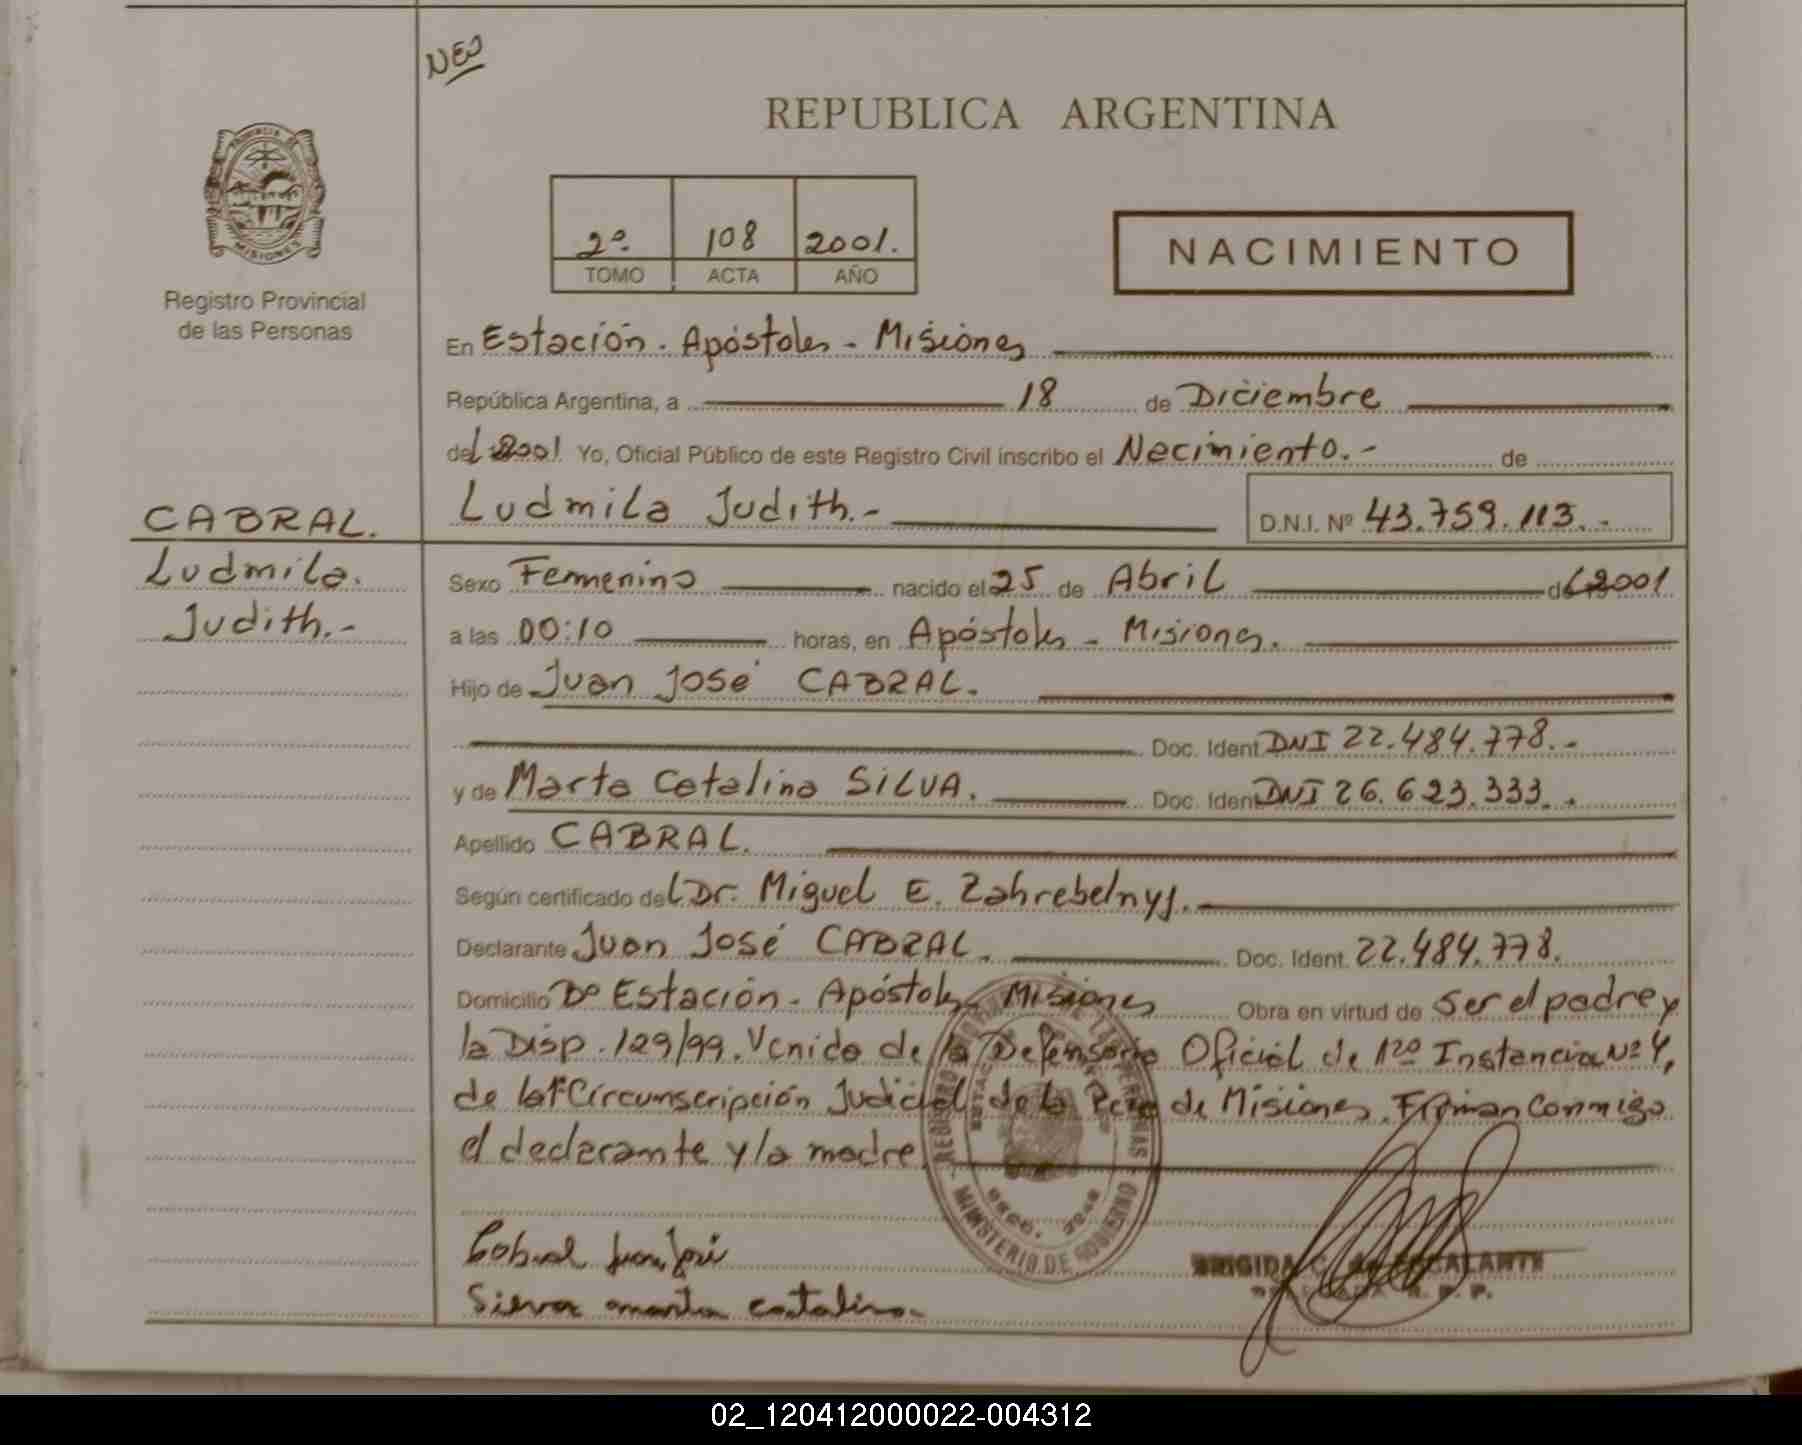 NES
REPUBLICA ARGENTINA
PROVINCIA DE
MISIONES
Registro Provincial
de las Personas
2º 108 2001.
TOMO ACTA AÑO
NACIMIENTO
En Estación - Apóstoles - Misiones
República Argentina, a 18 de Diciembre
del 2001 Yo, Oficial Público de este Registro Civil inscribo el Nacimiento.- de
CABRAL. Ludmila Judith.- D.N.I. Nº 43.759.113.-
Ludmila. Sexo Femenino nacido el 25 de Abril del 2001
Judith.- a las 00:10 horas, en Apóstoles - Misiones.
Hijo de Juan José CABRAL.
Doc. Ident. DNI 22.484.778.-
y de Marta Catalina SILVA. Doc. Ident. DNI 26.623.333.-
Apellido CABRAL.
Según certificado del Dr. Miguel E. Zahrebelnyj.
Declarante Juan José CABRAL. Doc. Ident. 22.484.778.
Domicilio Bº Estación - Apóstoles - Misiones Obra en virtud de ser el padre y
la Disp. 129/99. Venida de la Defensoría Oficial de 1ra Instancia Nº 4,
de la 1ª Circunscripción Judicial de la Pcia de Misiones. Firman conmigo
el declarante y la madre
REGISTRO DE LAS PERSONAS
MINISTERIO DE GOBIERNO
Cabral Juan José
BRIGIDA C. de ESCALANTE
Silva marta catalina
R. P. P.
02_120412000022-004312